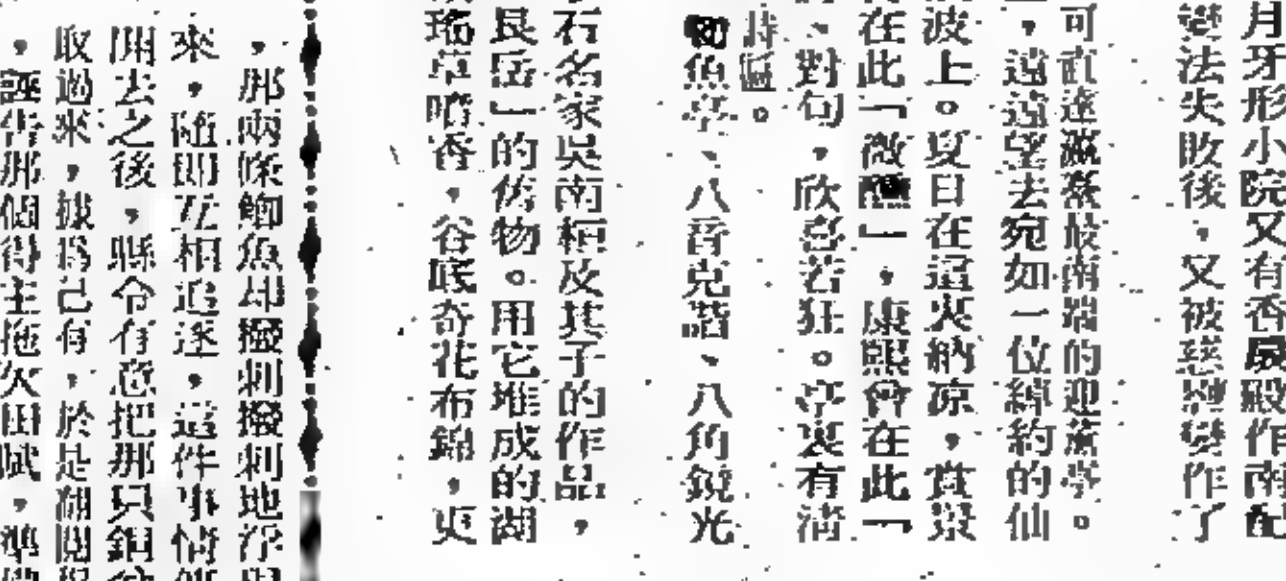 月牙形小院又有香扆殿作南配
變法失敗後，又被慈禧變作了
可直達瀛臺最南端的迎薰亭。
，遠遠望去宛如一位綽約的仙
波上。夏日在這火納凉，賞景
在此「微醺」，康熙曾在此「
、對句，欣喜若狂。亭裏有清
詩匾。
魚亭、八音克諧、八角鏡光
石名家吳南桓及其子的作品，
艮岳」的舊物。用它堆成的湖
瑤草噴香，谷底奇花布錦，更
，那兩條鯽魚却撥刺撥刺地浮
來，隨即互相追逐，這件事情
開去之後，縣令有意把那只銅
取過來，據爲己有，於是翻閱
，誣告那個得主拖欠田賦，準